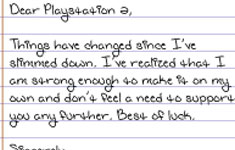 Dear Playstation 2,
Things have changed since I've
slimmed down. I've realized that I
am strong enough to make it on my
own and don't feel a need to support
you any further. Best of luck.
Sincerely,